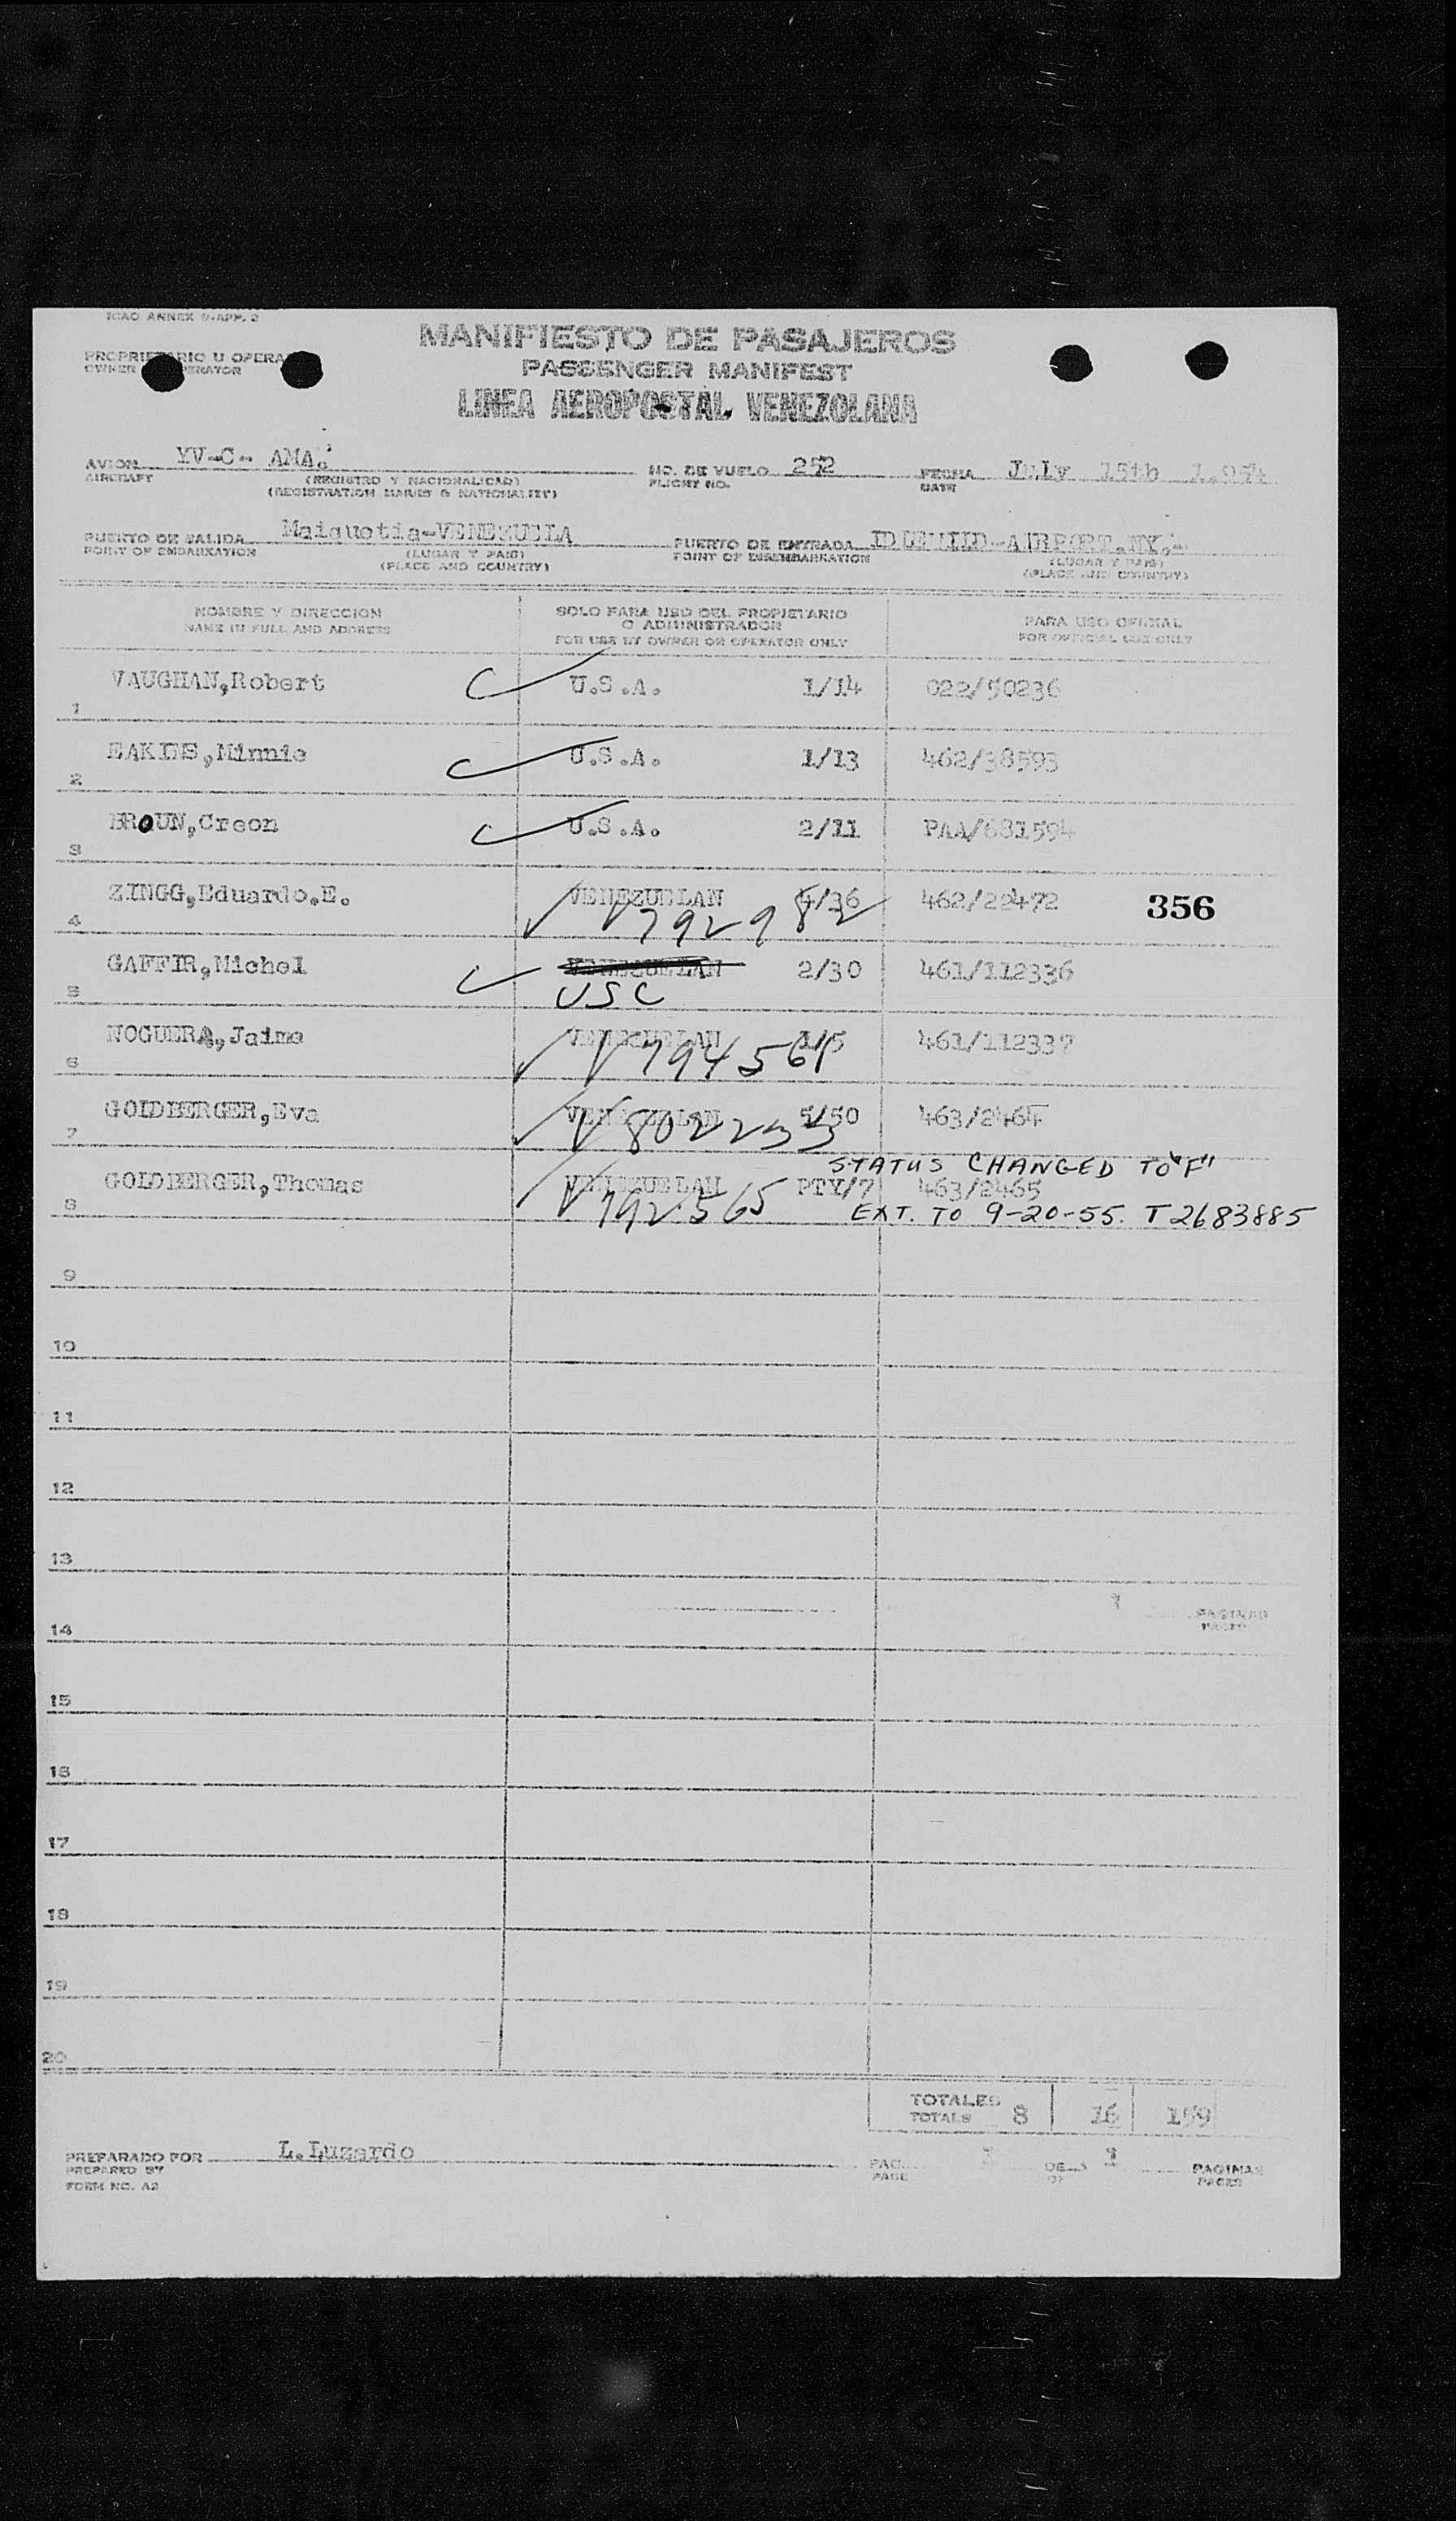 ICAO ANNEX 9-APP. 2
MANIFIESTO DE PASAJEROS
PROPRIETARIO U OPERA
OWNER PERATOR
PASSENGER MANIFEST
LINEA AEROPOSTAL VENEZOLANA
AVION YV-C- AMA. NO. DE VUELO 252 FECHA July 15th 1.954
AIRCRAFT (REGISTRO Y NACIONALIDAD) FLIGHT NO. DATE
(REGISTRATION MARKS & NATIONALITY)
PUERTO DE SALIDA Maiquetia-VENEZUELA PUERTO DE ENTRADA IDLEWILD-AIRPORT.NY.-
POINT OF EMBARKATION (LUGAR Y PAIS) POINT OF DISEMBARKATION (LUGAR Y PAIS)
(PLACE AND COUNTRY) (PLACE AND COUNTRY)
NOMBRE Y DIRECCION SOLO PARA USO DEL PROPIETARIO PARA USO OFICIAL
NAME IN FULL AND ADDRESS O ADMINISTRADOR FOR OFFICIAL USE ONLY
FOR USE BY OWNER OR OPERATOR ONLY
1 VAUGHAN,Robert U.S.A. 1/14 022/50236
2 EAKINS,Minnie U.S.A. 1/13 462/38593
3 BROUN,Creon U.S.A. 2/11 PAA/681594
4 ZINGG,Eduardo.E. VENEZUELAN 4/36 462/22472 356
V792982
5 GAFFIR,Michel VENEZUELAN 2/30 461/112336
USC
6 NOGUERA,Jaime VENEZUELAN 1/5 461/112337
V794561
7 GOLDBERGER,Eva VENEZUELAN 5/50 463/2464
V8022333
STATUS CHANGED TO "F"
8 GOLDBERGER,Thomas VENEZUELAN PTY/7 463/2465
V792565 EXT. TO 9-20-55. T2683885
9
10
11
12
13
14 PAGINAS
PAGES
15
16
17
18
19
20
TOTALES
TOTALS 8 16 159
PREPARADO POR L.Luzardo PAG. DE PAGINAS
PREPARED BY PAGE OF PAGES
FORM NO. A2